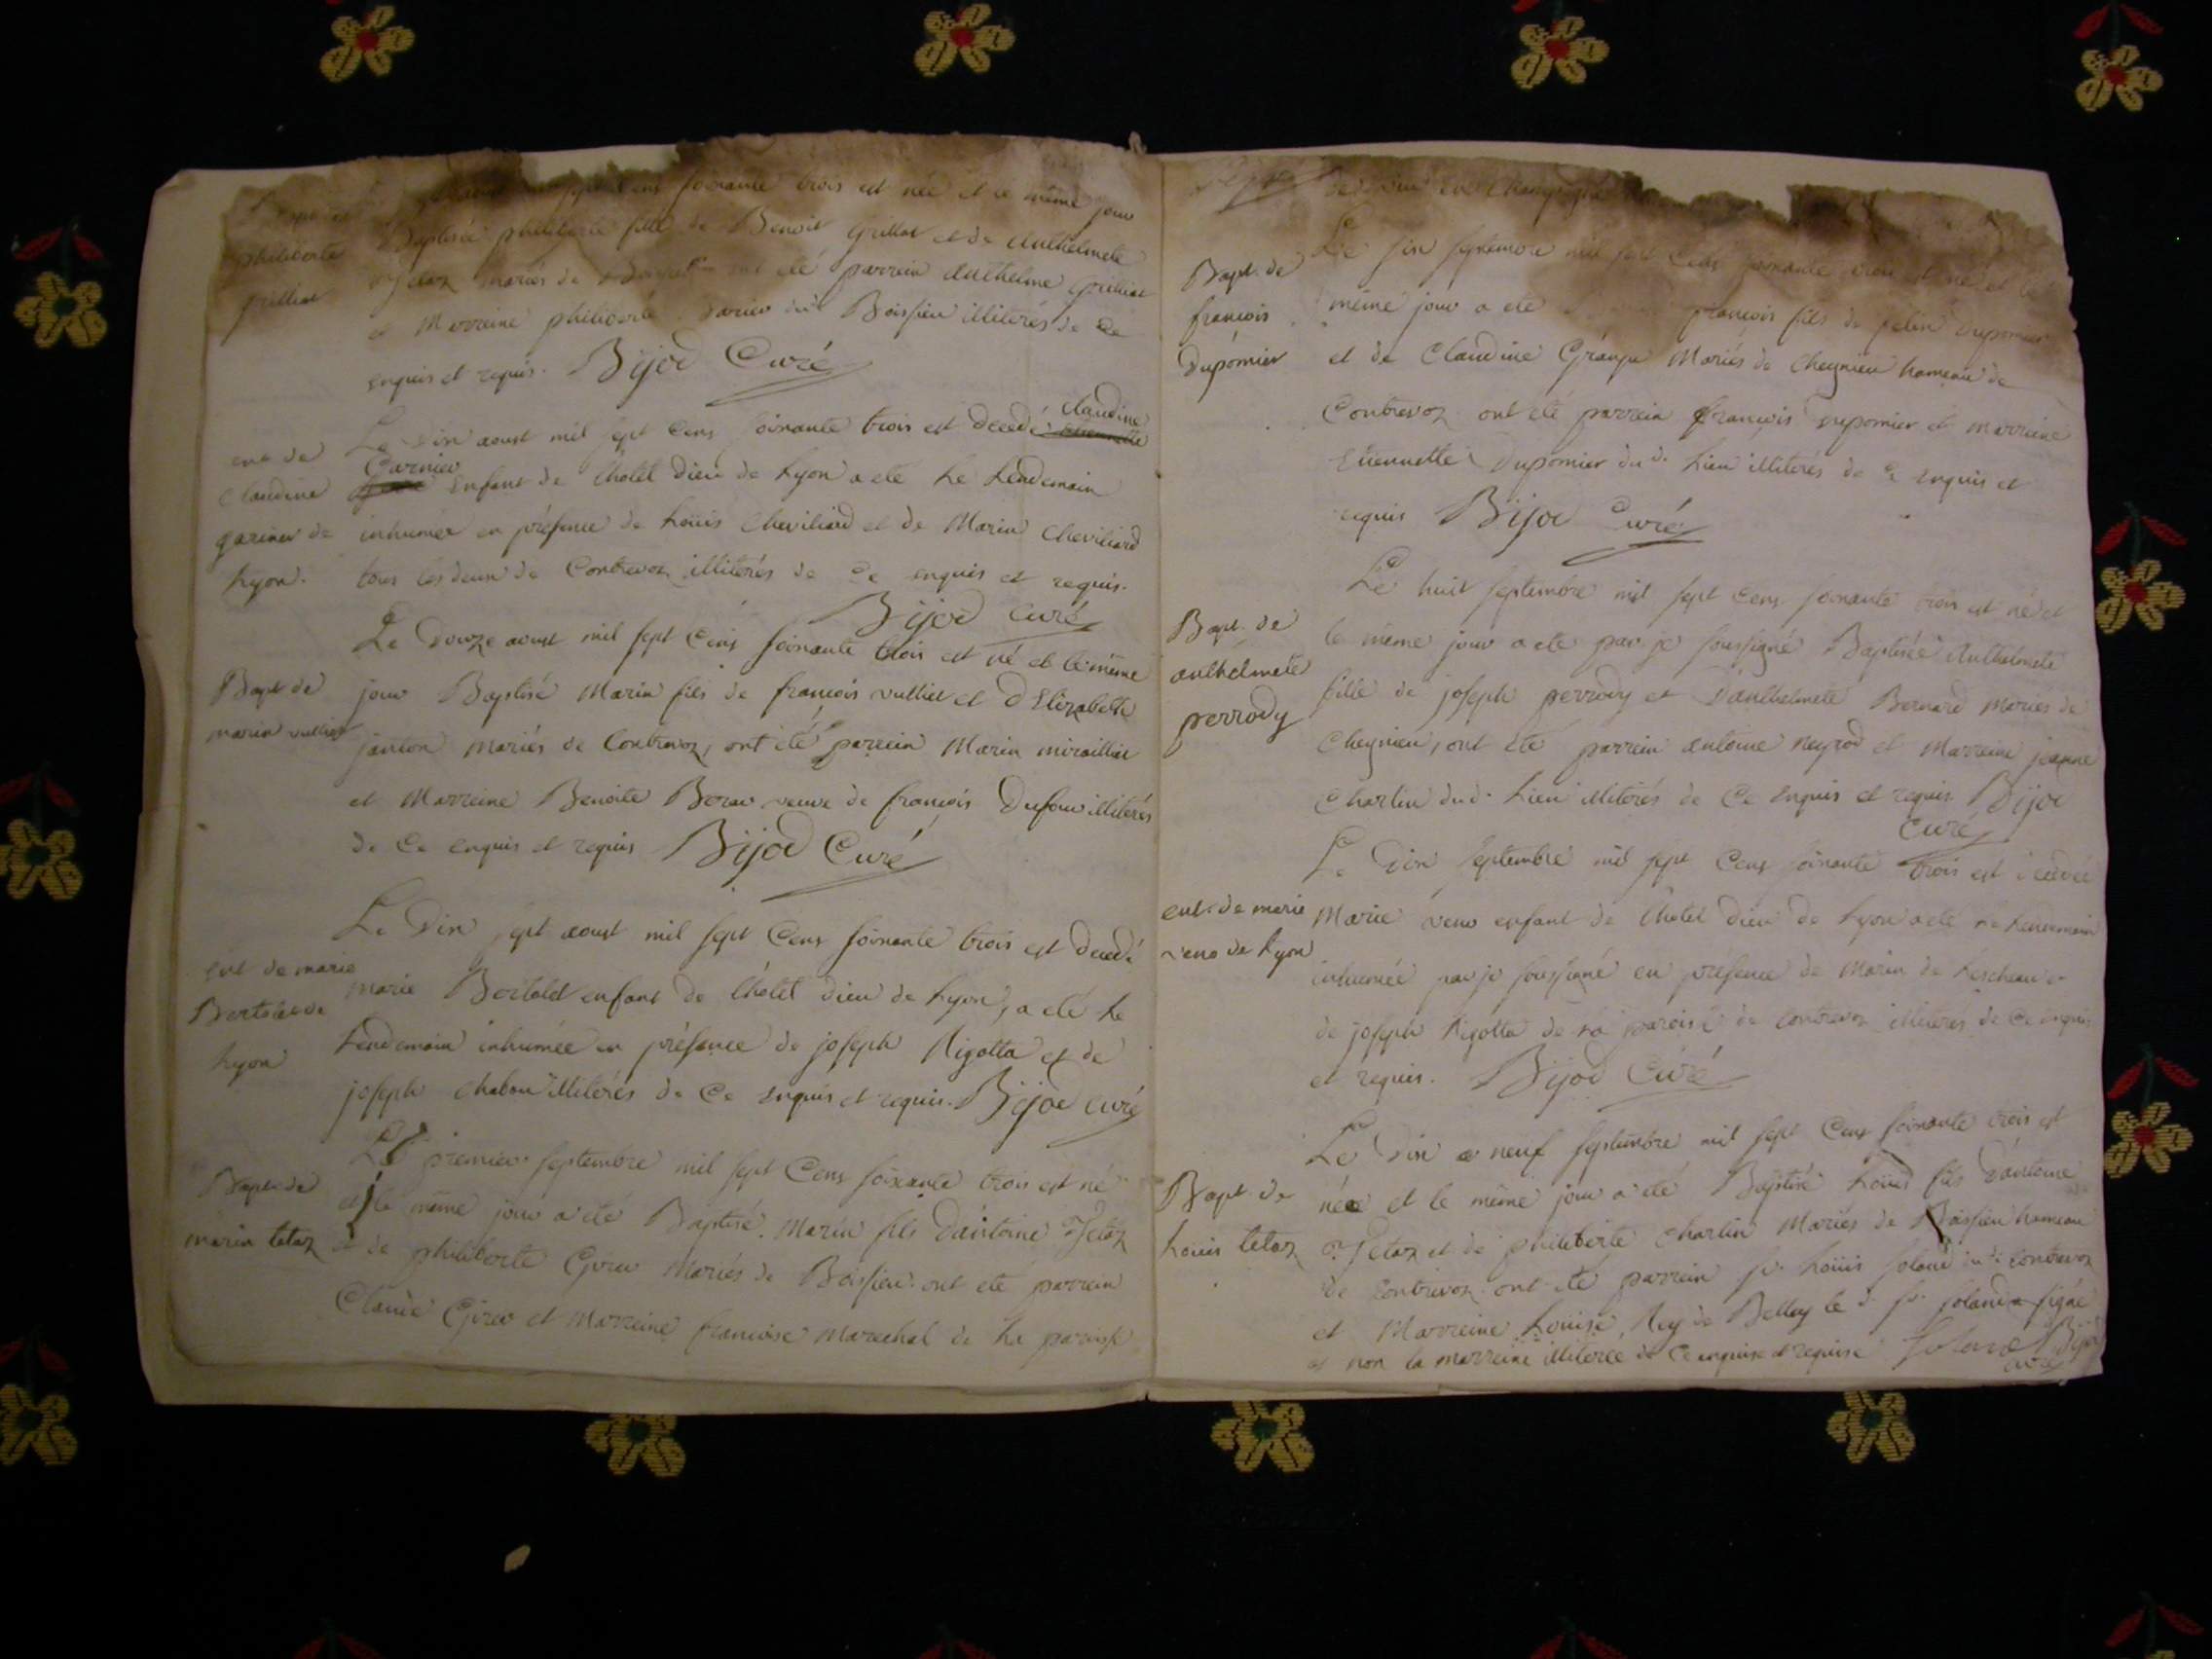 sept Cens soixante trois est née et le même jour
philiberte
Baptisée philiberte fille de Benoit grillat et de Anthelmete
grilliat
Jetaz mariés de ont été parrein Anthelme grilliat
et Marreine philiberte du.d Boissieu illiterés de Ce
enquis et requis. Bijod Curé
claudine
Le dix aoust mil sept Cens soixante trois est decedé
ent de
Garnier
claudine
Enfant de l'hotel dieu de Lyon a eté Le Lendemain
gariner de
inhumée en présence de Loüis Cheviliard et de Marin Cheviliard
Lyon.
tous les deux de Contrevoz illiterés de Ce enquis et requis.
Bijod curé
Le douze aoust mil sept Cens soixante trois est né et le même
Bapt de
jour Baptisé Marin fils de françois vulliet et d'Elizabeth
marin vulliet
janton mariés de Contrevoz, ont été parrein Marin miraillier
et Marreine Benoite Borac veuve de françois Dufour illiterés
de Ce enquis et requis Bijod Curé
Le dix sept aoust mil sept Cens soixante trois est decedé
ent de marie
marie Bertolet enfant de l'hotel dieu de Lyon, a eté Le
Bertolet de
Lendemain inhumée en présence de joseph Rigotta et de
Lyon
joseph chabou illiterés de Ce enquis et requis. Bijod curé
Le premier septembre mil sept Cens soixante trois est né
Bapt. de
et le même jour a été Baptisé. Marin fils d'antoine Jetaz
marin tetaz
et de philiberte Girev mariés de Boissieu. ont été parrein
Claude Girev et Marreine francoise marechal de La paroisse
en Champagne
Le six septembre mil sept Cens soixante trois est né et le
Bapt. de
même jour a eté françois fils de felix Dupomier
françois
Dupomier
et de Claudine Grange Mariés de Cheynieu hameau de
Contrevoz ont été parrein françois Dupomier et marreine
Etiennette Dupomier du d. Lieu illiterés de Ce enquis et
requis Bijod Curé
Le huit septembre mil sept Cens soixante trois est né et
Bapt. de
le même jour a eté par je soussigné Baptisée Anthelmete
anthelmete
fille de joseph perrody et d'anthelmete Bernard mariés de
perrody
Cheynieu, ont eté parrein antoine neyrod et Marreine jeanne
Charlin du d. Lieu illiterés de Ce enquis et requis Bijod
Curé
Le dix septembre mil sept Cens soixante trois est decedée
ent. de marie
Marie veno enfant de l'hotel dieu de Lyon a eté Le Lendemain
veno de Lyon
inhumée par je soussigné en présence de Marin de Lescheau et
de joseph Rigotta de La paroisse de Contrevoz illiterés de Ce enquis
et requis. Bijod Curé
Le dix neuf septembre mil sept Cens soixante trois est
Bapt. de
né et le même jour a été Baptisé Loüis fils d'antoine
Loüis tetaz
Jetaz et de philiberte Charlin Mariés de Boissieu hameau
de Contrevoz ont été parrein sr. Loüis joland du d. Contrevoz
et Marreine Louise Rey de Belley le d. sr. joland a signé
et non la marreine illiterée de Ce enquise et requise Joland Bijod
curé